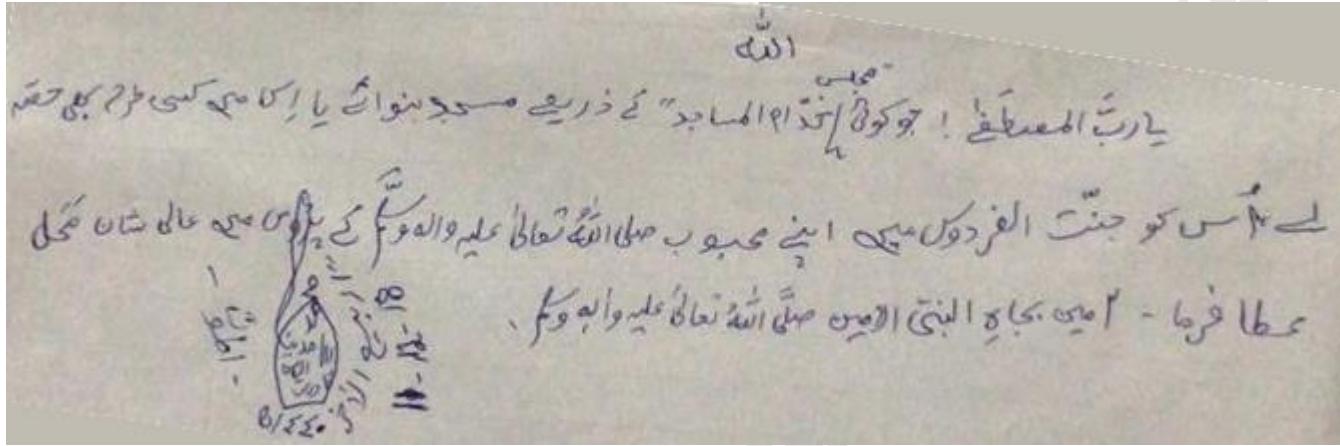 اللہ
یا ربَّ المصطَفٰے ! جو کوئی "مجلسِ خُدّام المساجد" کے ذریعے مسجد بنوائے یا اِس کام میں کسی طرح بھی حصّہ
لے اُس کو جنّتُ الفردوس میں اپنے محبوب صلی اللہُ تعالیٰ علیہ واٰلہ وسلَّم کے پڑوس میں عالی شان مَحل
عطا فرما - اٰمین بجاہِ النبیِّ الامین صلَّی اللہُ تعالیٰ علیہ واٰلہٖ وسلَّم.